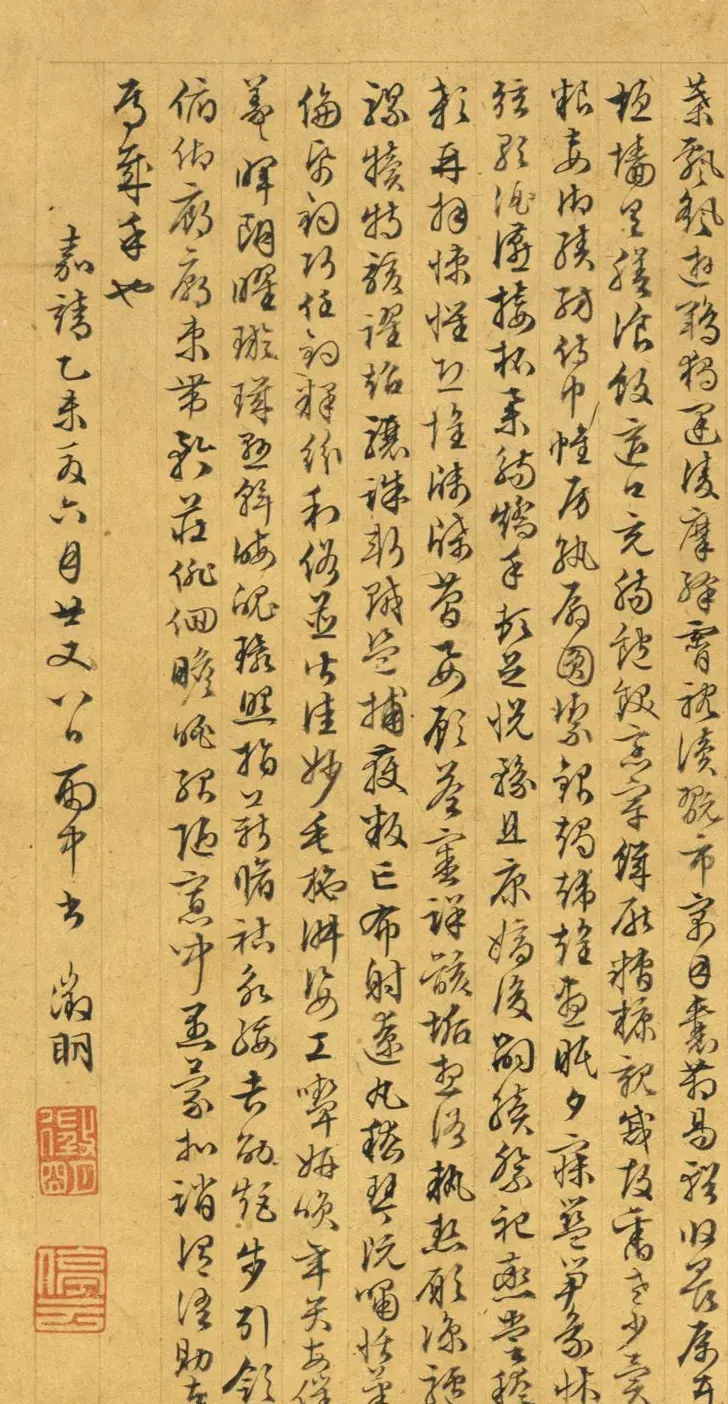 葉飄颻遊鵾獨運凌摩絳霄耽讀翫市寓目囊箱易輶攸畏屬耳
垣墻具膳飡飯適口充腸飽飫烹宰饑厭糟糠親戚故舊老少異
粮妾御績紡侍巾帷房紈扇圓潔銀燭煒煌晝眠夕寐藍笋象床
弦歌酒讌接杯舉觴矯手頓足悅豫且康嫡後嗣續祭祀蒸嘗稽
顙再拜悚懼恐惶牋牒簡要顧答審詳骸垢想浴執熱願涼驢
騾犢特駭躍超驤誅斬賊盜捕獲叛亡布射遼丸嵇琴阮嘯恬筆
倫紙鈞巧任釣釋紛利俗並皆佳妙毛施淑姿工顰妍咲年矢每催
羲暉朗曜璇璣懸斡晦魄環照指薪脩祜永綏吉劭矩步引領
俯仰廊廟束帶矜莊徘徊瞻眺孤陋寡聞愚蒙等誚謂語助者
焉哉乎也
嘉靖乙未夏六月廿又八日雨中書 徵明
停雲